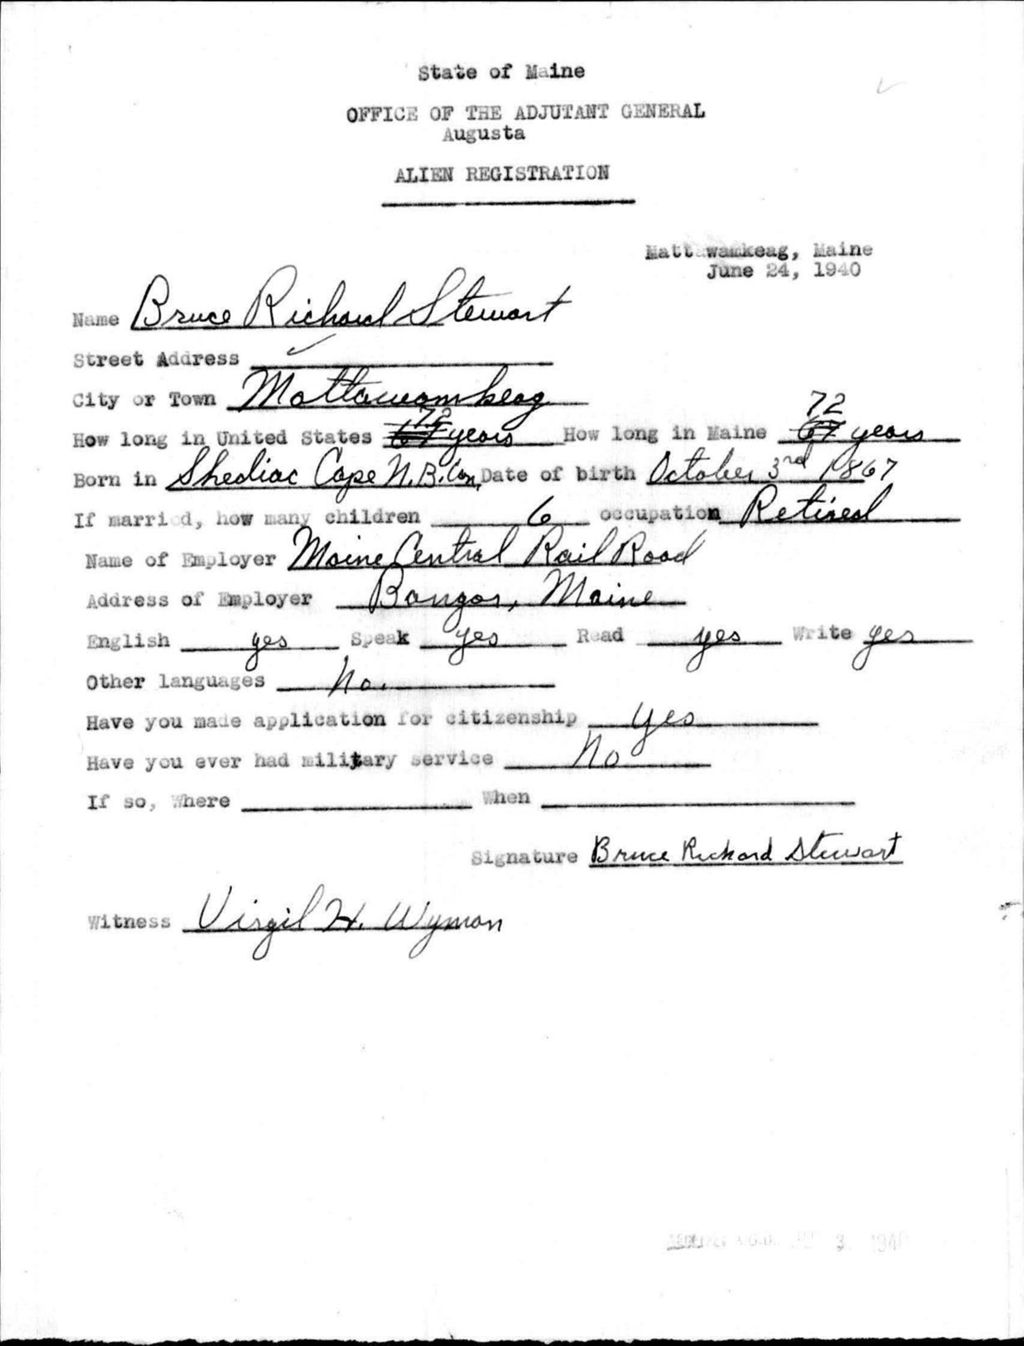 State of Maine
OFFICE OF THE ADJUTANT GENERAL
Augusta
ALIEN REGISTRATION
Mattawamkeag, Maine
June 24, 1940
Name Bruce Richard Stewart
Street Address
City or Town Mattawamkeag
How long in United States 72 years How long in Maine 72 years
Born in Shediac Cape N.B. Can. Date of birth October 3rd 1867
If married, how many children 6 occupation Retired
Name of Employer Maine Central Rail Road
Address of Employer Bangor, Maine
English yes Speak yes Read yes Write yes
Other languages No.
Have you made application for citizenship yes
Have you ever had military service No
If so, Where When
Signature Bruce Richard Stewart
Witness Virgil H. Wyman
3 1940